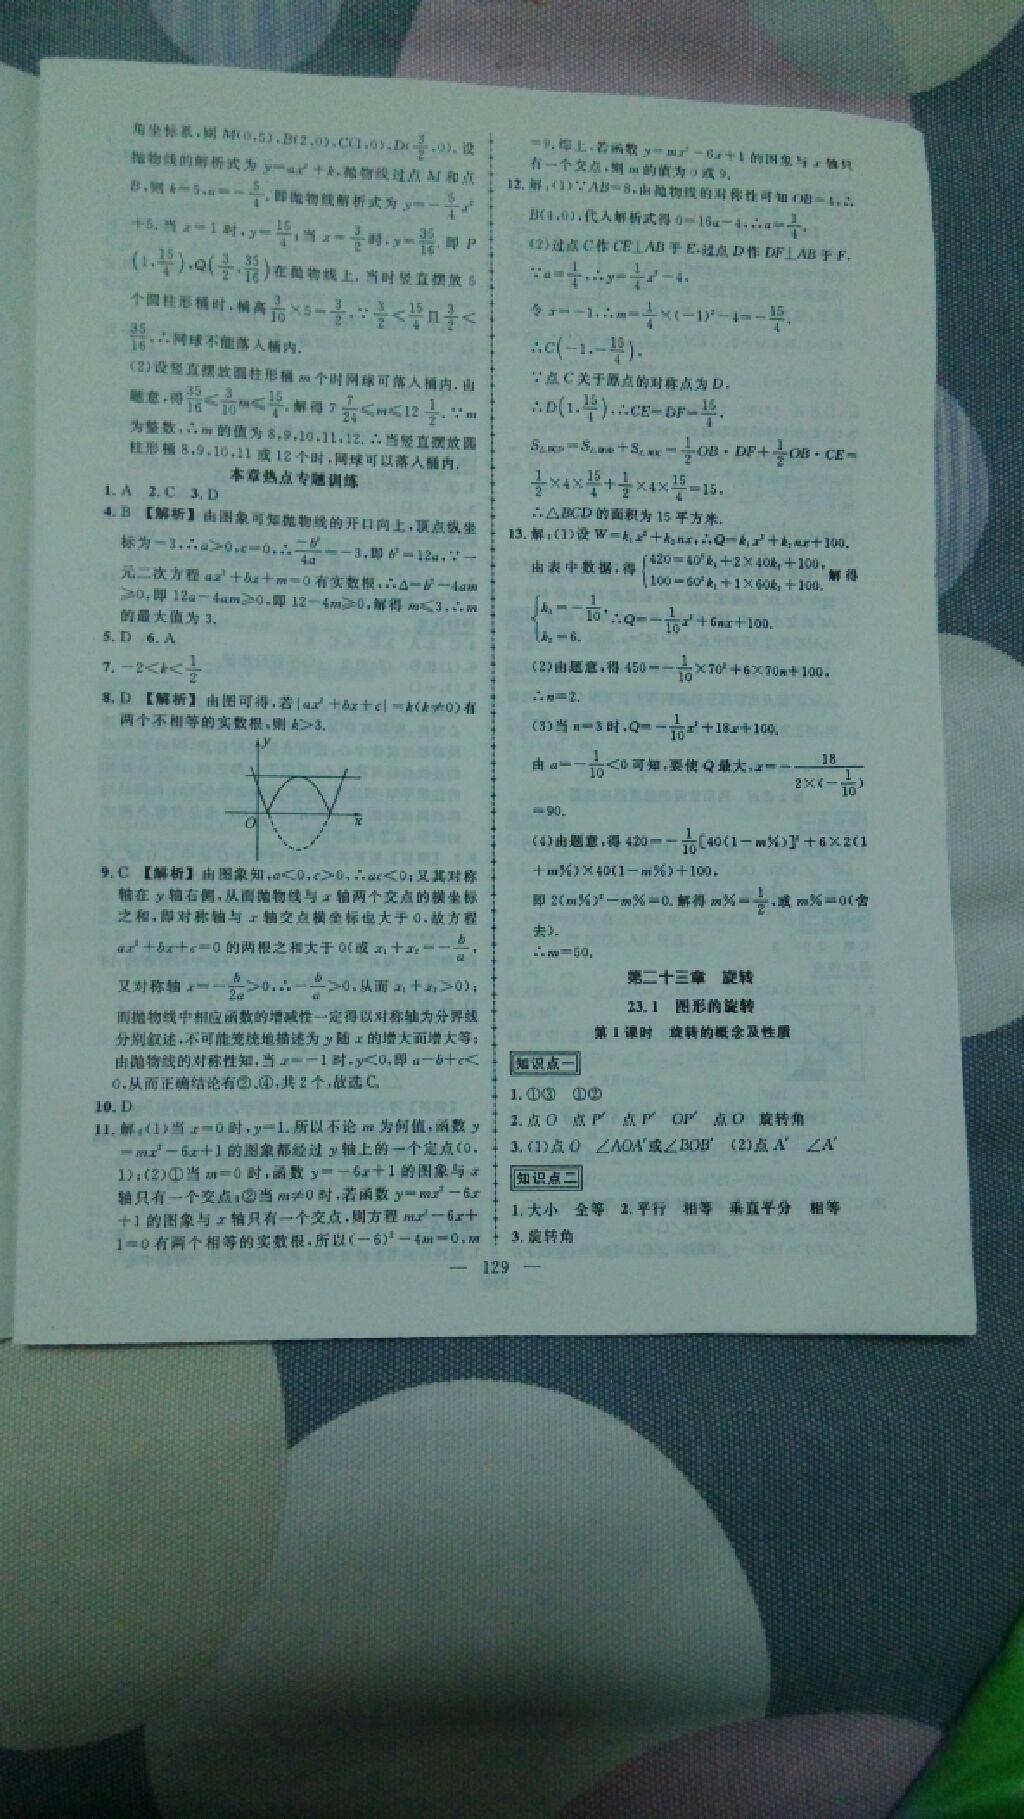 角坐标系,则 M(0,5),B(2,0),C(1,0),D(3/2,0).设
抛物线的解析式为 y=ax²+k,抛物线过点 M 和点
B,则 k=5,a=-5/4.即抛物线解析式为 y=-5/4x²
+5.当 x=1 时,y=15/4;当 x=3/2 时,y=35/16.即 P
(1,15/4),Q(3/2,35/16)在抛物线上.当时竖直摆放 5
个圆柱形桶时,桶高3/10×5=3/2.∵3/2<15/4且3/2<
35/16,∴网球不能落入桶内.
(2)设竖直摆放圆柱形桶 m 个时网球可落入桶内.由
题意,得35/16≤3/10m≤15/4.解得 7 7/24≤m≤12 1/2.∵m
为整数,∴m 的值为 8,9,10,11,12.∴当竖直摆放圆
柱形桶 8,9,10,11 或 12 个时,网球可以落入桶内.
本章热点专题训练
1.A 2.C 3.D
4.B 【解析】由图象可知抛物线的开口向上,顶点纵坐
标为-3,∴a>0,c=0,∴-b²/4a=-3,即 b²=12a,∵一
元二次方程 ax²+bx+m=0 有实数根,∴△=b²-4am
≥0,即 12a-4am≥0,即 12-4m≥0,解得 m≤3,∴m
的最大值为 3.
5.D 6.A
7.-2<k<1/2
8.D 【解析】由图可得,若|ax²+bx+c|=k(k≠0)有
两个不相等的实数根,则 k>3.
y
O
x
9.C 【解析】由图象知,a<0,c>0,∴ac<0;又其对称
轴在 y 轴右侧,从而抛物线与 x 轴两个交点的横坐标
之和,即对称轴与 x 轴交点横坐标也大于 0.故方程
ax²+bx+c=0 的两根之和大于 0(或 x₁+x₂=-b/a,
又对称轴 x=-b/2a>0,∴-b/a>0,从而 x₁+x₂>0);
而抛物线中相应函数的增减性一定得以对称轴为分界线
分别叙述,不可能笼统地描述为 y 随 x 的增大而增大等;
由抛物线的对称性知,当 x=-1 时,y<0,即 a-b+c<
0,从而正确结论有②、④,共 2 个,故选 C.
10.D
11.解:(1)当 x=0 时,y=1.所以不论 m 为何值,函数 y
=mx²-6x+1 的图象都经过 y 轴上的一个定点(0,
1);(2)①当 m=0 时,函数 y=-6x+1 的图象与 x
轴只有一个交点;②当 m≠0 时,若函数 y=mx²-6x
+1 的图象与 x 轴只有一个交点,则方程 mx²-6x+
1=0 有两个相等的实数根,所以(-6)²-4m=0,m
=9.综上,若函数 y=mx²-6x+1 的图象与 x 轴只
有一个交点,则 m 的值为 0 或 9.
12.解:(1)∵AB=8,由抛物线的对称性可知 OB=4,∴
B(4,0),代入解析式得 0=16a-4,∴a=1/4.
(2)过点 C 作 CE⊥AB 于 E,过点 D 作 DF⊥AB 于 F,
∵a=1/4,∴y=1/4x²-4,
令 x=-1,∴m=1/4×(-1)²-4=-15/4,
∴C(-1,-15/4),
∵点 C 关于原点的对称点为 D,
∴D(1,15/4),∴CE=DF=15/4,
S△BCD=S△BOD+S△BOC=1/2OB·DF+1/2OB·CE=
1/2×4×15/4+1/2×4×15/4=15,
∴△BCD 的面积为 15 平方米.
13.解:(1)设 W=k₁x²+k₂nx,∴Q=k₁x²+k₂nx+100.
由表中数据,得{420=40²k₁+2×40k₂+100, 100=60²k₁+1×60k₂+100. 解得
{k₁=-1/10, k₂=6. ∴Q=-1/10x²+6nx+100.
(2)由题意,得 450=-1/10×70²+6×70n+100,
∴n=2.
(3)当 n=3 时,Q=-1/10x²+18x+100.
由 a=-1/10<0 可知,要使 Q 最大,x=-18/2×(-1/10)
=90.
(4)由题意,得 420=-1/10[40(1-m%)]²+6×2(1
+m%)×40(1-m%)+100,
即 2(m%)²-m%=0.解得 m%=1/2,或 m%=0(舍
去).
∴m=50.
第二十三章 旋转
23.1 图形的旋转
第 1 课时 旋转的概念及性质
知识点一
1.①③ ①②
2.点 O 点 P′ 点 P′ OP′ 点 O 旋转角
3.(1)点 O ∠AOA′或∠BOB′ (2)点 A′ ∠A′
知识点二
1.大小 全等 2.平行 相等 垂直平分 相等
3.旋转角
— 129 —